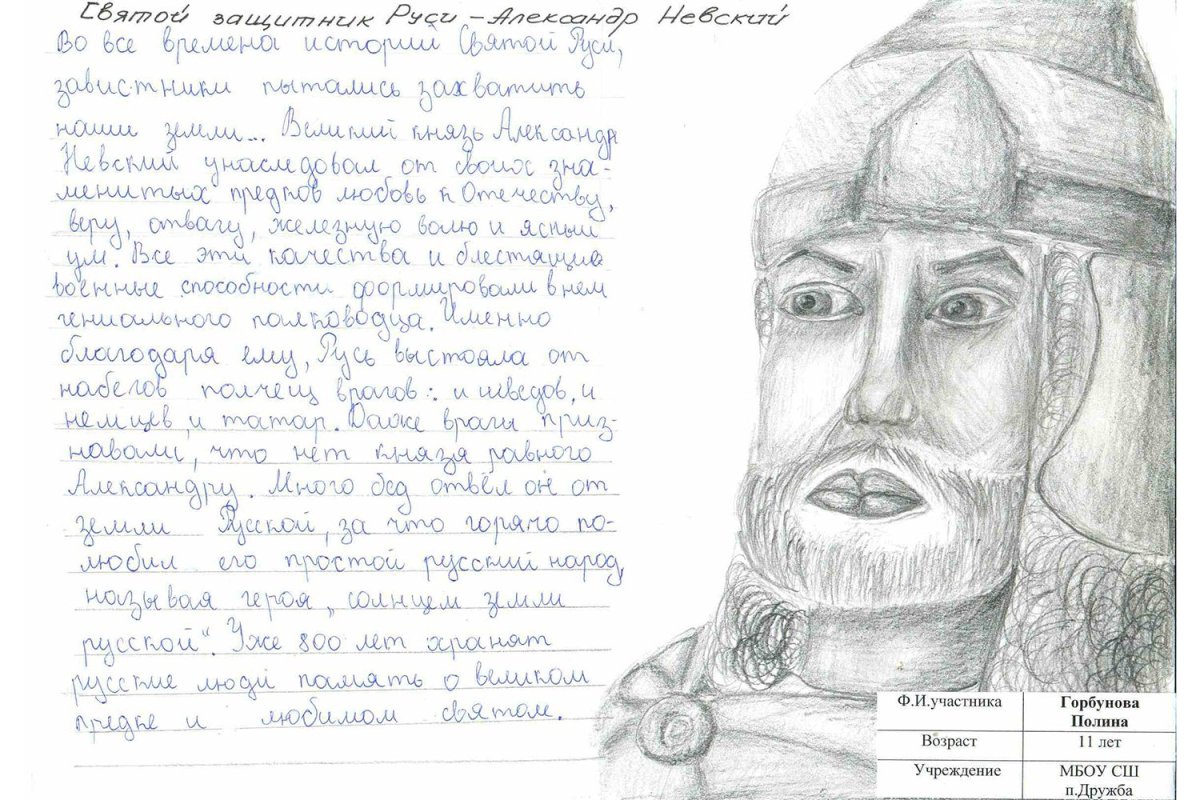 Святой защитник Руси – Александр Невский
Во все времена историй Святой Руси,
завистники пытались захватить
наши земли... Великий князь Александр
Невский унаследовал от своих зна-
менитых предков любовь к Отечеству,
веру, отвагу, железную волю и ясный
ум. Все эти качества и блестящие
военные способности формировали в нем
гениального полководца. Именно
благодаря ему, Русь выстояла от
набегов полчещ врагов: и шведов, и
немцев, и татар. Даже враги приз-
навали, что нет князя равного
Александру. Много бед отвёл он от
земли Русской, за что горячо по-
любил его простой русский народ,
называя героя „солнцем земли
русской“. Уже 800 лет хранят
русские люди память о великом
предке и любимом святом.
Ф.И.участника Горбунова
Полина
Возраст 11 лет
Учреждение МБОУ СШ
п.Дружба